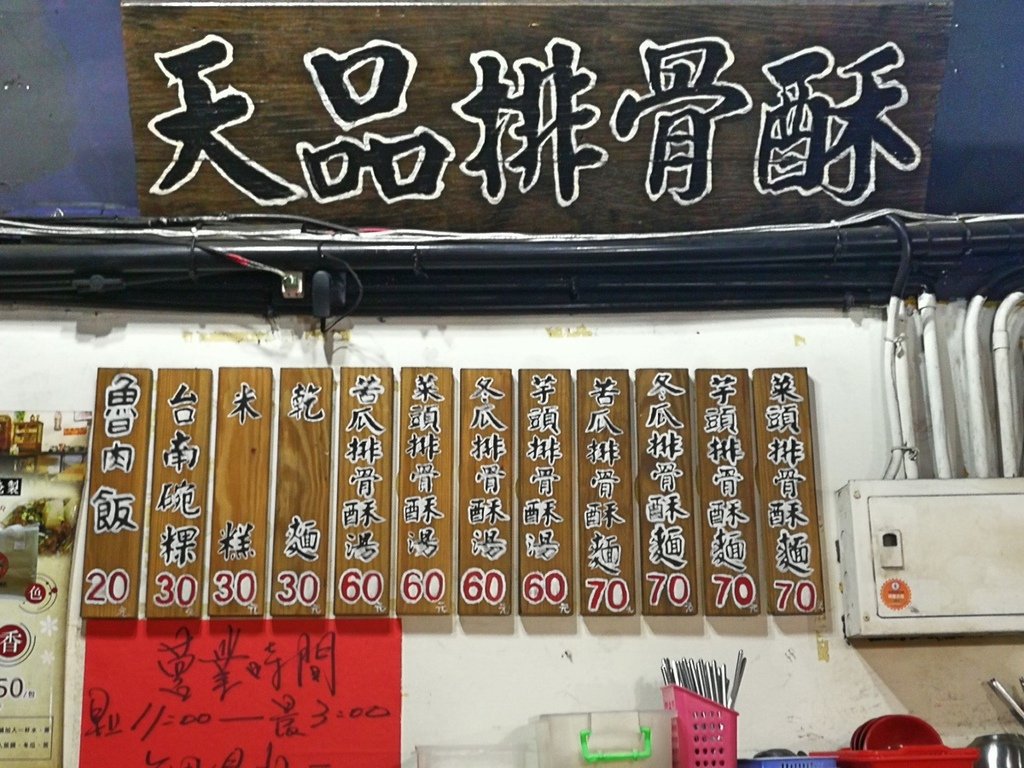 天品排骨酥
菜頭排骨酥麵 70元
芋頭排骨酥麵 70元
冬瓜排骨酥麵 70元
苦瓜排骨酥麵 70元
芋頭排骨酥湯 60元
冬瓜排骨酥湯 60元
菜頭排骨酥湯 60元
苦瓜排骨酥湯 60元
乾麵 30元
米糕 30元
台南碗粿 30元
魯肉飯 20元
營業時間
11:00—
3:00
香
50/包